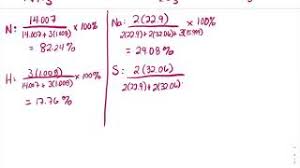 N: 14.007 / 14.007 + 3(1.008) × 100%
= 82.24%
H: 3(1.008) / 14.007 + 3(1.008) × 100%
= 17.76%
Na: 2(22.9) / 2(22.9) + 2(32.06) + 3(15.999) × 100%
= 29.08%
S: 2(32.06) / 2(22.9) + 2(32.06)